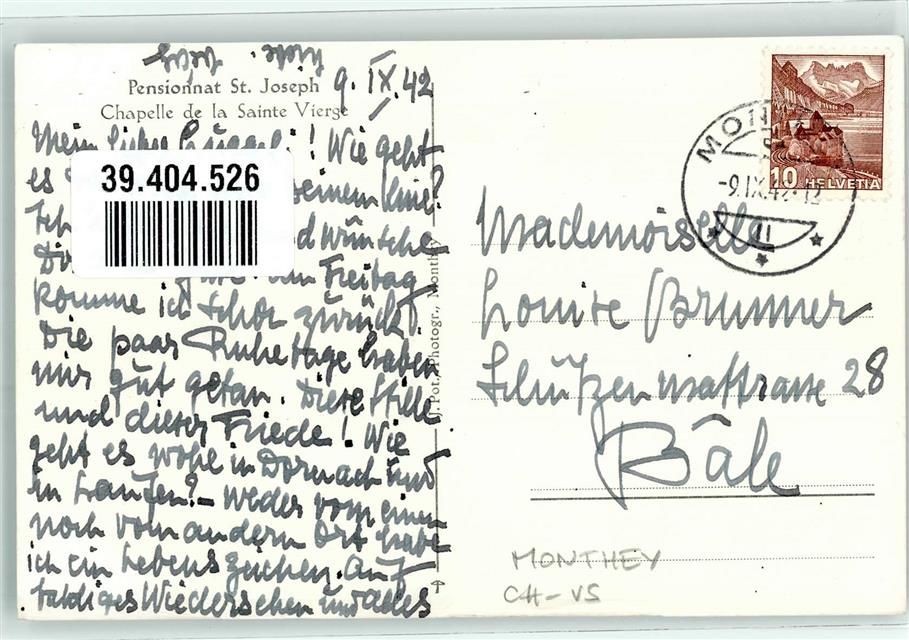 Pensionnat St. Joseph
Chapelle de la Sainte Vierge
9. IX. 42
Mein liebes ! Wie geht
es deinem Knie?
Ich und wünsche
Dir gute. Am Freitag
komme ich schon zurück.
Die paar Ruhetage haben
mir gut getan. Diese Stille
und dieser Friede! Wie
geht es wohl in Dornach und
in Laufen? – Weder vom einen
noch vom andern Ort habe
ich ein Lebenszeichen. Auf
baldiges Wiedersehen und alles
39.404.526
Photogr., Monthey
MON
-9.IX.42-12
10 HELVETIA
Mademoiselle
Louise Brunner
Schützenmattstrasse 28
Bâle
MONTHEY
CH-VS